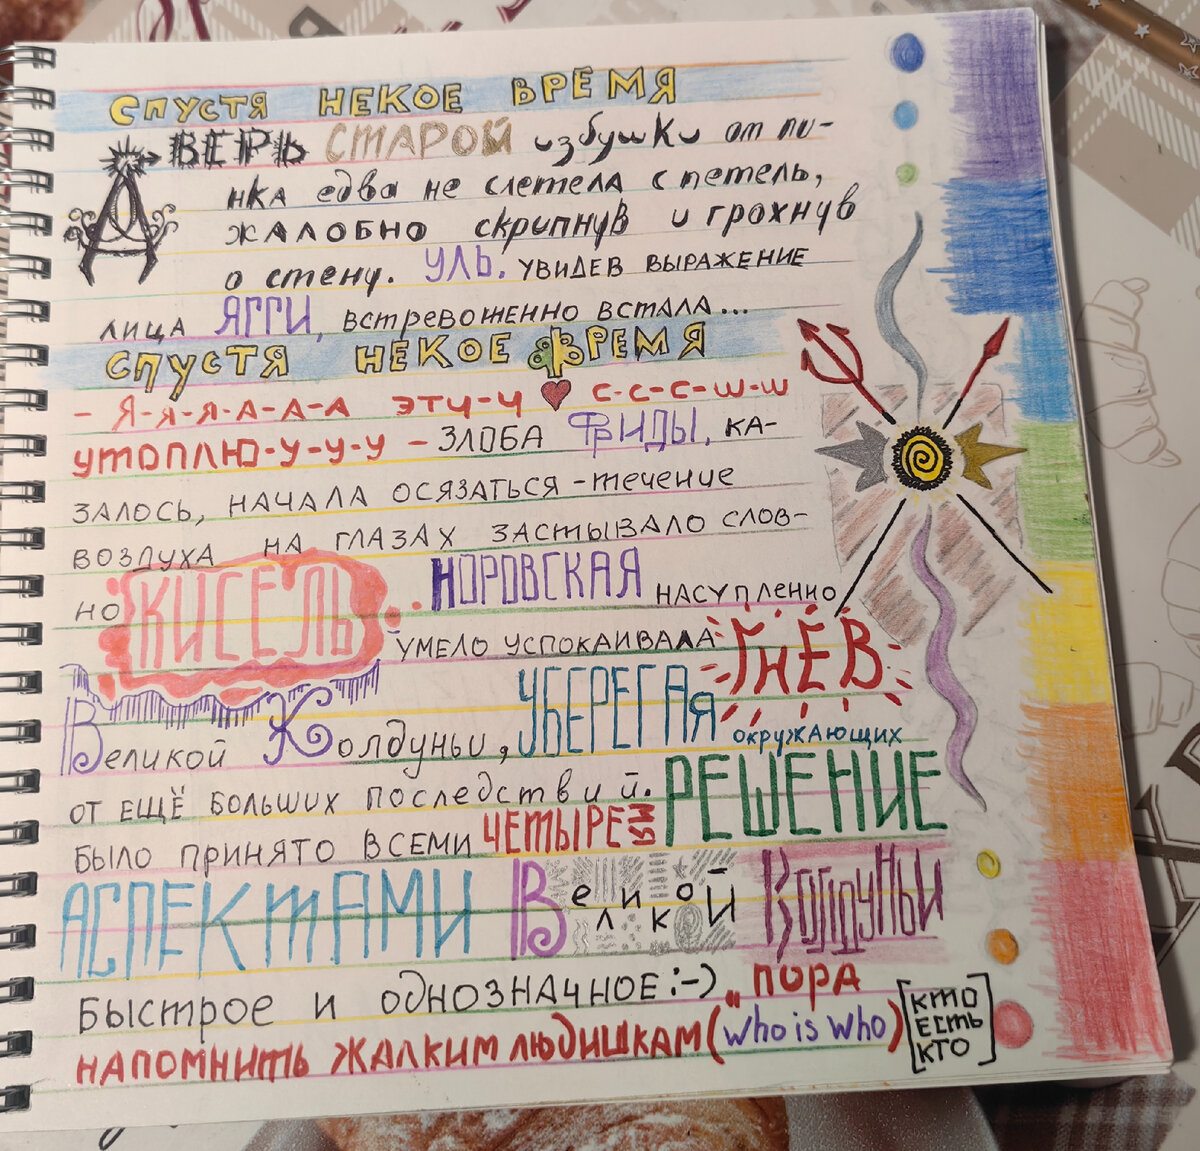 СПУСТЯ НЕКОЕ ВРЕМЯ
ДВЕРЬ СТАРОЙ избушки от пи-
нка едва не слетела с петель,
жалобно скрипнув и грохнув
о стену. УЛЬ, УВИДЕВ ВЫРАЖЕНИЕ
ЛИЦА ЯГГИ, ВСТРЕВОЖЕННО ВСТАЛА...
СПУСТЯ НЕКОЕ ВРЕМЯ
- Я-Я-Я-А-А-А ЭТУ-У С-С-С-Ш-Ш
УТОПЛЮ-У-У-У - ЗЛОБА ФРИДЫ, КА-
ЗАЛОСЬ, НАЧАЛА ОСЯЗАТЬСЯ - течение
ВОЗДУХА НА ГЛАЗАХ ЗАСТЫВАЛО СЛОВ-
НО КИСЕЛЬ. НОРОВСКАЯ НАСУПЛЕННО
УМЕЛО УСПОКАИВАЛА ГНЕВ
Великой Колдуньи, УБЕРЕГАЯ окружающих
ОТ ЕЩЁ БОЛЬШИХ ПОСЛЕДСТВИЙ. РЕШЕНИЕ
БЫЛО ПРИНЯТО ВСЕМИ ЧЕТЫРЕМЯ
АСПЕКТАМИ Великой КОЛДУНЬИ
БЫСТРОЕ И ОДНОЗНАЧНОЕ :-) „ПОРА
НАПОМНИТЬ ЖАЛКИМ ЛЮДИШКАМ (who is who) [КТО
ЕСТЬ
КТО]